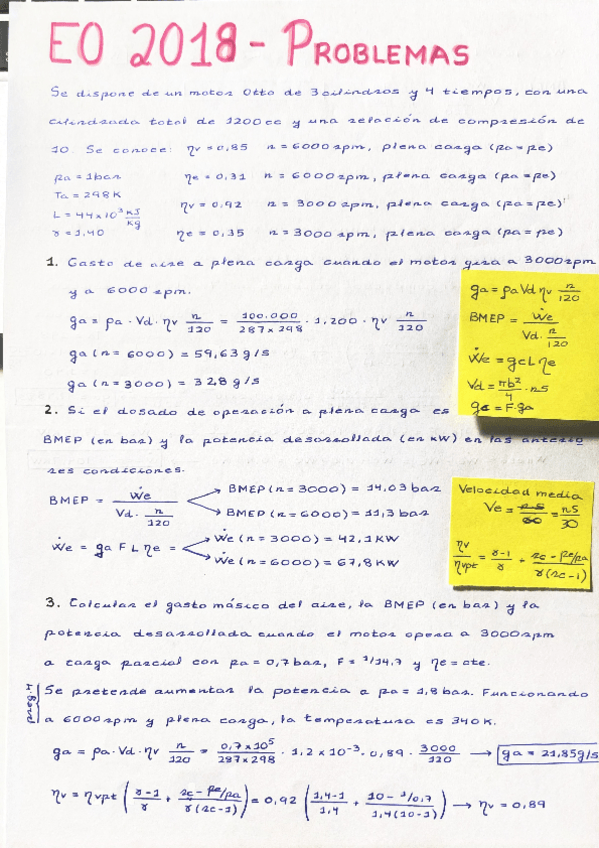 EO 2018 - PROBLEMAS
Se dispone de un motor Otto de 3 cilindros y 4 tiempos, con una
cilindrada total de 1200cc y una relación de compresión de
10. Se conoce: ηv = 0,85 n = 6000 rpm, plena carga (pa = pe)
pa = 1 bar ηe = 0,31 n = 6000 rpm, plena carga (pa = pe)
Ta = 298K
L = 44x10³ kJ/kg ηv = 0,92 n = 3000 rpm, plena carga (pa = pe)
γ = 1,40 ηe = 0,35 n = 3000 rpm, plena carga (pa = pe)
1. Gasto de aire a plena carga cuando el motor gira a 3000 rpm
y a 6000 rpm.
ga = ρa · Vd · ηv n/120 = 100.000/287x298 · 1,200 · ηv n/120
ga (n = 6000) = 59,63 g/s
ga (n = 3000) = 32,8 g/s
ga = ρa Vd ηv n/120
BMEP = Ẇe / Vd · n/120
Ẇe = gc L ηe
Vd = πb²/4 · ns
gc = F · ga
2. Si el dosado de operación a plena carga es
BMEP (en bar) y la potencia desarrollada (en kW) en las anterio
res condiciones.
BMEP = Ẇe / Vd · n/120
BMEP (n = 3000) = 14,03 bar
BMEP (n = 6000) = 11,3 bar
Ẇe = ga F L ηe =
Ẇe (n = 3000) = 42,1 KW
Ẇe (n = 6000) = 67,8 KW
Velocidad media
Ve = = ns/30
ηv/ηvpt = γ-1/γ + rc - pe/pa / γ(rc-1)
3. Calcular el gasto másico del aire, la BMEP (en bar) y la
potencia desarrollada cuando el motor opera a 3000 rpm
a carga parcial con pa = 0,7 bar, F = 1/14,7 y ηe = cte.
Se pretende aumentar la potencia a pa = 1,8 bar. Funcionando
a 6000 rpm y plena carga, la temperatura es 340K.
ga = ρa · Vd · ηv n/120 = 0,7x10⁵/287x298 · 1,2x10⁻³ · 0,89 · 3000/120 → ga = 21,85 g/s
ηv = ηvpt (γ-1/γ + rc - pe/pa / γ(rc-1)) = 0,92 (1,4-1/1,4 + 10 - 1/0,7 / 1,4(10-1)) → ηv = 0,89